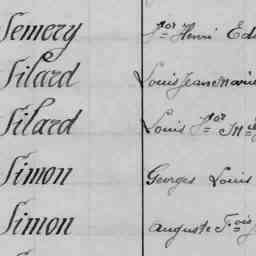 Semery Jor Henri Ed
Silard Louis Jean Marie
Silard Louis Jor M
Simon Georges Louis
Simon Auguste Fois J